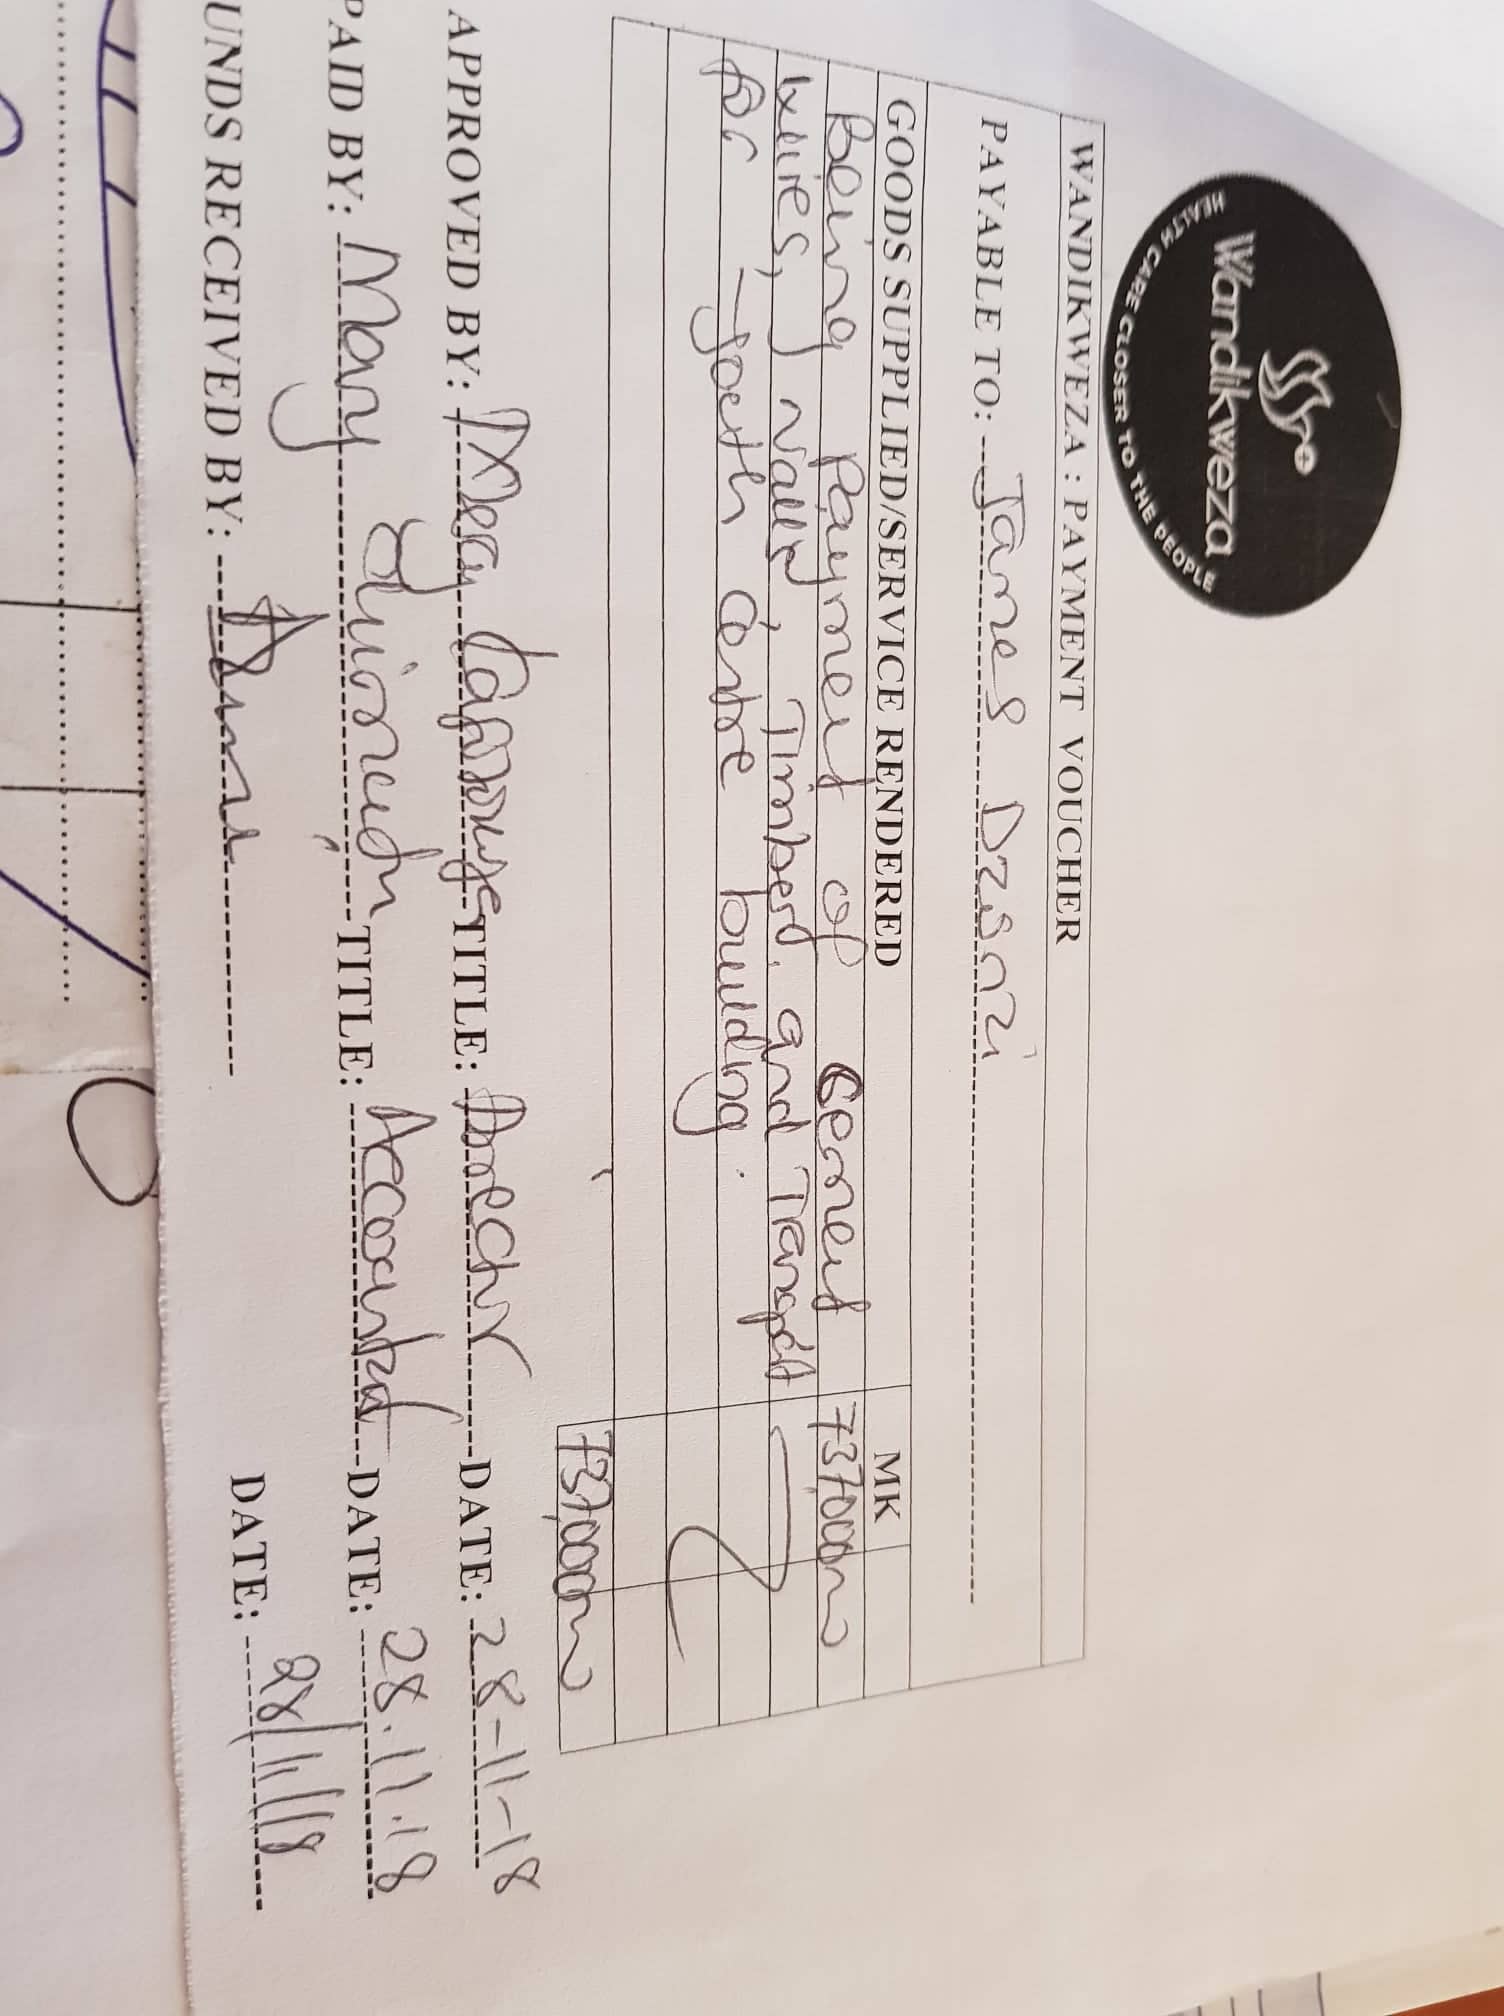 Wandikweza
HEALTH CARE CLOSER TO THE PEOPLE
WANDIKWEZA : PAYMENT VOUCHER
PAYABLE TO: James Dzanzi
GOODS SUPPLIED/SERVICE RENDERED MK
Being payment of Cement 737,000
wires, nails, Timbers, and Transport
for Youth Centre building.
737,000
APPROVED BY: Mercy TITLE: Director DATE: 28-11-18
PAID BY: Mary TITLE: Accountant DATE: 28.11.18
UNDS RECEIVED BY: DATE: 28/11/18